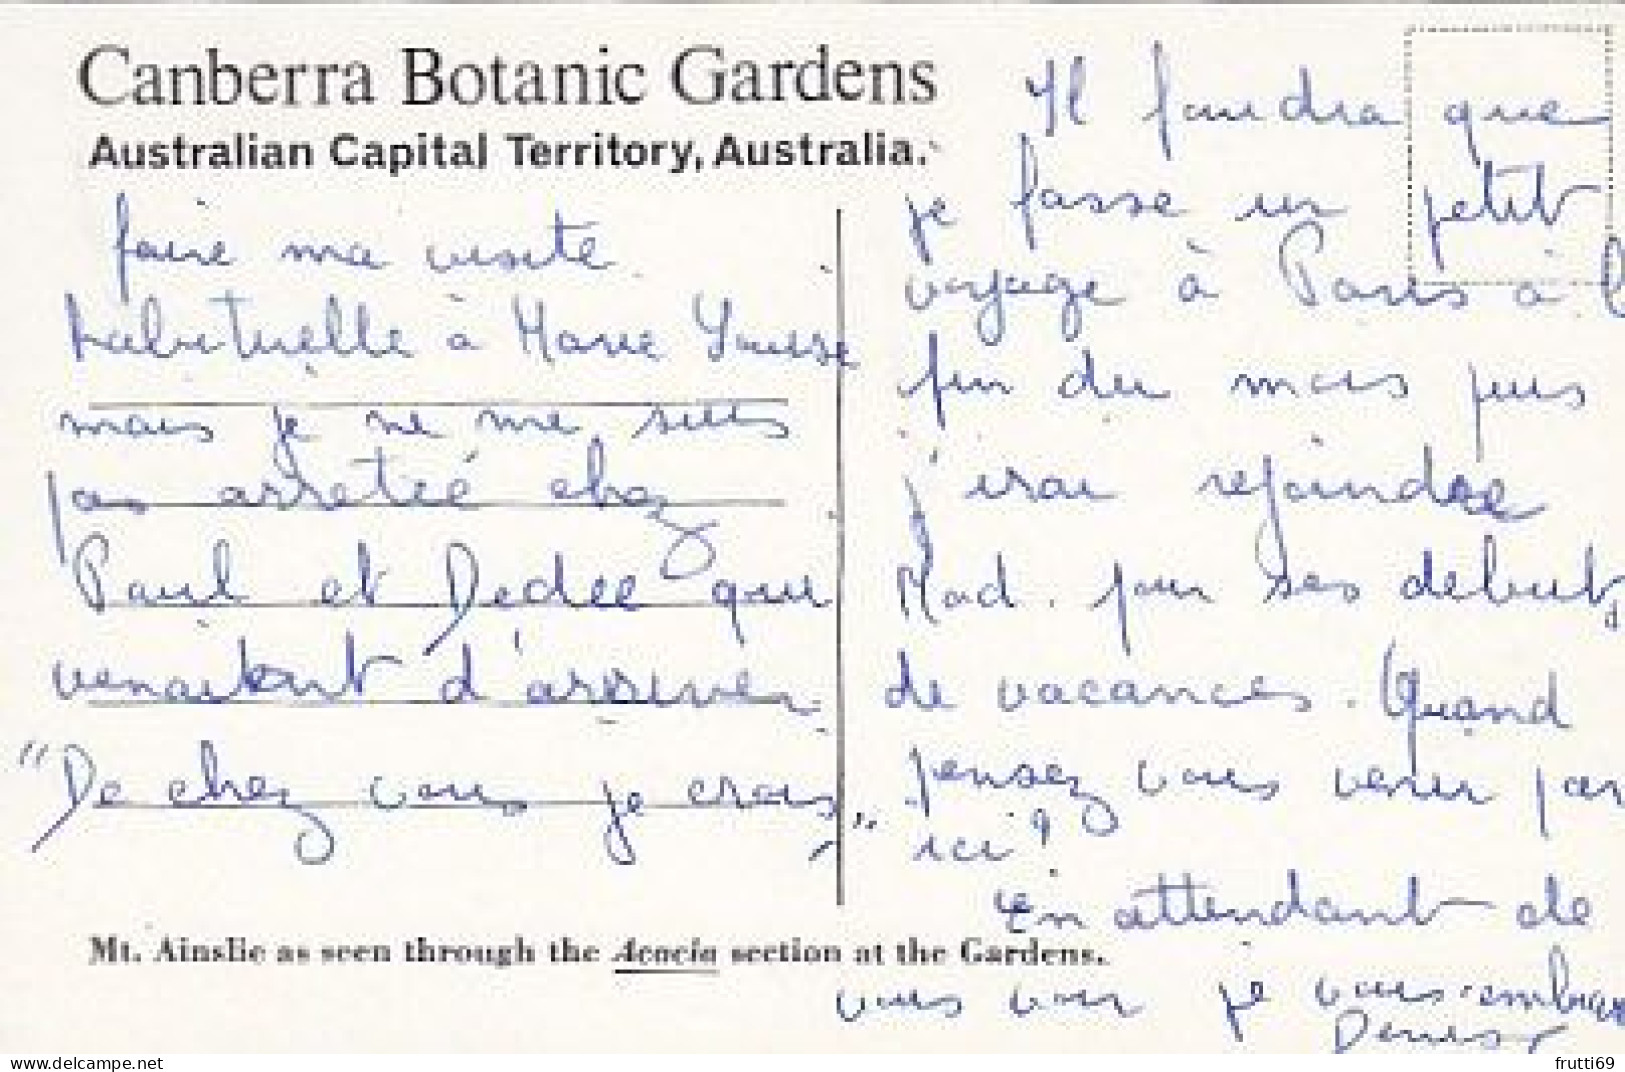 Canberra Botanic Gardens
Australian Capital Territory, Australia.
faire ma visite
habituelle à Marie Louise
mais je ne me suis
pas arretée chez
Paul et Dedee qui
venaient d'arriver
"De chez vous je crois"
Mt. Ainslie as seen through the Acacia section at the Gardens.
Il faudra que
je fasse un petit
voyage à Paris à l
fin du mois puis
j'irai rejoindre
Mad. pour ses debuts
de vacances. Quand
pensez vous venir par
ici?
En attendant de
vous voir je vous embras
Denise
delcampe.net
frutti69